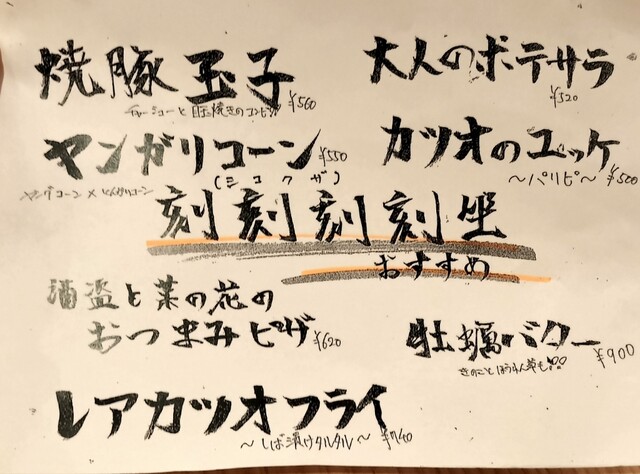 焼豚玉子
チャーシューと目玉焼きのコンビ ¥560
大人のポテサラ
¥520
ヤンガリコーン ¥550
ヤングコーン×とんがりコーン
カツオのユッケ
～パリピ～ ¥500
(シコクザ)
刻刻刻刻坐
おすすめ
酒盗と菜の花の
おつまみピザ ¥620
牡蠣バター
きのことほうれん草も!! ¥900
レアカツオフライ
～しば漬けタルタル～ ¥740